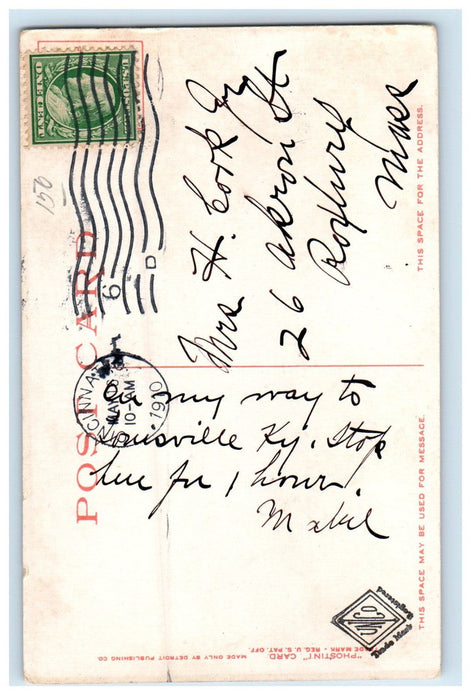 POST CARD
THIS SPACE MAY BE USED FOR MESSAGE.
THIS SPACE FOR THE ADDRESS.
150
CINCINNATI
10-AM
1910
6
D
ONE CENT
On my way to
Louisville Ky. Stop
here for 1 hour.
Mabel
Mrs H. Cook Jr
26 Akron St
Roxbury
Mass
"PHOSTINT" CARD
TRADE MARK - REG. U.S. PAT. OFF.
MADE ONLY BY DETROIT PUBLISHING CO.
Trade Mark